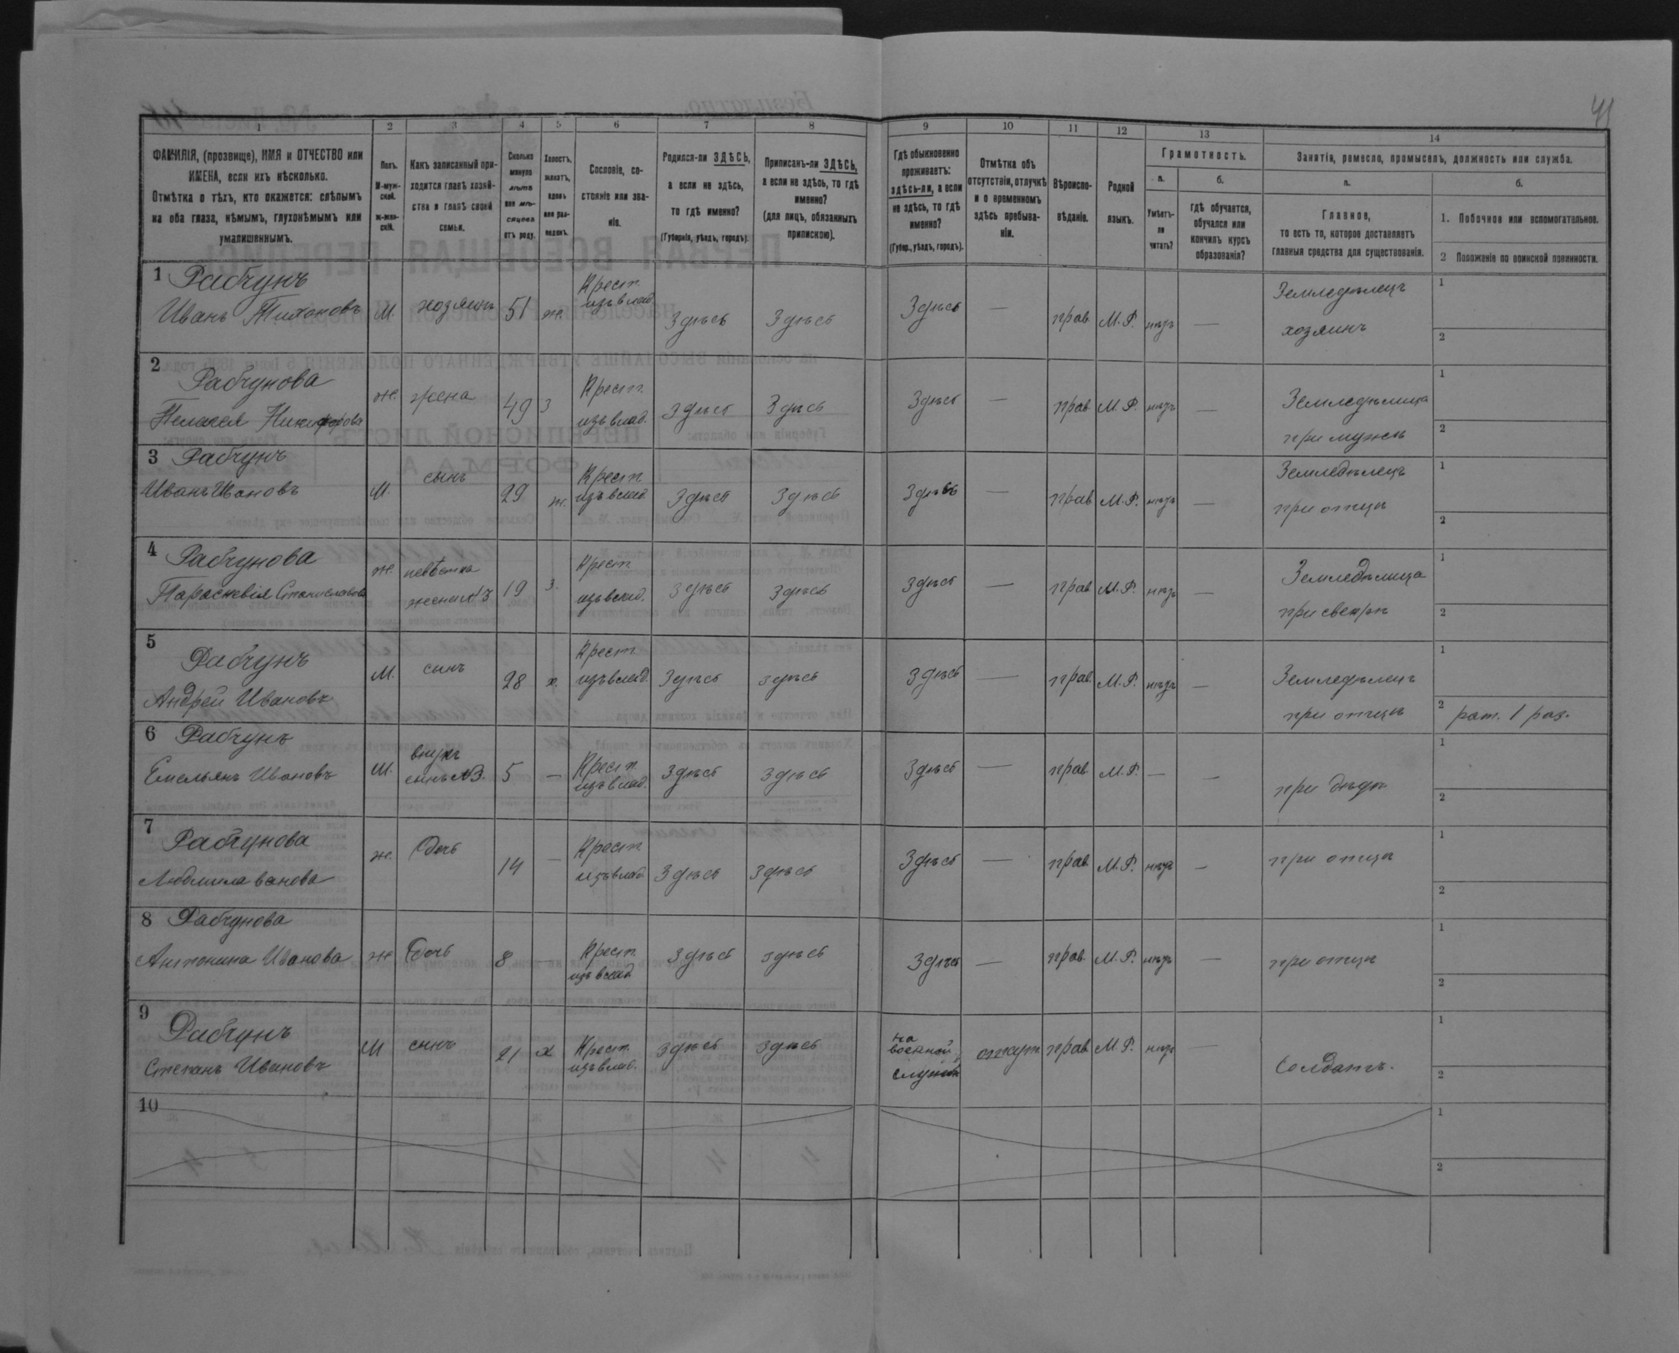 41
1 2 3 4 5 6 7 8 9 10 11 12 13 14
ФАМИЛІЯ, (прозвище), ИМЯ и ОТЧЕСТВО или
ИМЕНА, если ихъ нѣсколько.
Отмѣтка о тѣхъ, кто окажется: слѣпымъ
на оба глаза, нѣмымъ, глухонѣмымъ или
умалишеннымъ.
Полъ.
М-муж-
ской.
Ж-жен-
скій.
Какъ записанный при-
ходится главѣ хозяй-
ства и главѣ своей
семьи.
Сколько
минуло
лѣтъ
или мѣ-
сяцевъ
отъ роду.
Холостъ,
женатъ,
вдовъ
или раз-
веденъ.
Сословіе, со-
стояніе или зва-
ніе.
Родился-ли ЗДѢСЬ,
а если не здѣсь,
то гдѣ именно?
(Губернія, уѣздъ, городъ).
Приписанъ-ли ЗДѢСЬ,
а если не здѣсь, то гдѣ
именно?
(для лицъ, обязанныхъ
припискою).
Гдѣ обыкновенно
проживаетъ:
здѣсь-ли, а если
не здѣсь, то гдѣ
именно?
(Губер., уѣздъ, городъ).
Отмѣтка объ
отсутствіи, отлучкѣ
и о временномъ
здѣсь пребыва-
ніи.
Вѣроиспо-
вѣданіе.
Родной
языкъ.
Грамотность.
а.
Умѣетъ-
ли
читать?
б.
Гдѣ обучается,
обучался или
кончилъ курсъ
образованія?
Занятія, ремесло, промыселъ, должность или служба.
а.
Главное,
то есть то, которое доставляетъ
главныя средства для существованія.
б.
1. Побочное или вспомогательное.
2 Положеніе по воинской повинности.
1 Рабчунъ
Иванъ Тихоновъ М. хозяинъ 51 ж. Крест. изъ влад. Здѣсь Здѣсь Здѣсь — прав. М.Р. нѣтъ — Земледѣлецъ хозяинъ 1 2
2 Рабчунова
Пелагея Никифорова ж. жена 49 з Крест. изъ влад. Здѣсь Здѣсь Здѣсь — прав М.Р. нѣтъ — Земледѣлица при мужѣ 1 2
3 Рабчунъ
Иванъ Ивановъ М. сынъ 29 ж. Крест. изъ влад Здѣсь Здѣсь Здѣсь — прав М.Р. нѣтъ — Земледѣлецъ при отцѣ 1 2
4 Рабчунова
Параскевія Станиславова ж. невѣстка жена №3 19 з. Крест изъ влад. Здѣсь Здѣсь Здѣсь — прав М.Р. нѣтъ — Земледѣлица при свекрѣ 1 2
5 Рабчунъ
Андрей Ивановъ М. сынъ 28 х. Крест. изъ влад. Здѣсь здѣсь Здѣсь — прав М.Р. нѣтъ — Земледѣлецъ при отцѣ 1 2 рат. 1 раз.
6 Рабчунъ
Емельянъ Ивановъ М. внукъ сынъ №3. 5 — Крест. изъ влад. Здѣсь Здѣсь Здѣсь — прав. М.Р. — — при дѣдѣ 1 2
7 Рабчунова
Людмила ванова ж. Дочь 14 — Крест. изъ влад Здѣсь Здѣсь Здѣсь — прав М.Р. нѣтъ — при отцѣ 1 2
8 Рабчунова
Антонина Иванова ж Дочь 8 — Крест. изъ влад Здѣсь здѣсь Здѣсь — прав. М.Р. нѣтъ — при отцѣ 1 2
9 Рабчунъ
Степанъ Ивановъ М сынъ 21 х Крест. изъ влад. здѣсь здѣсь на военной службѣ прав М.Р. нѣтъ — Солдатъ. 1 2
10 1 2